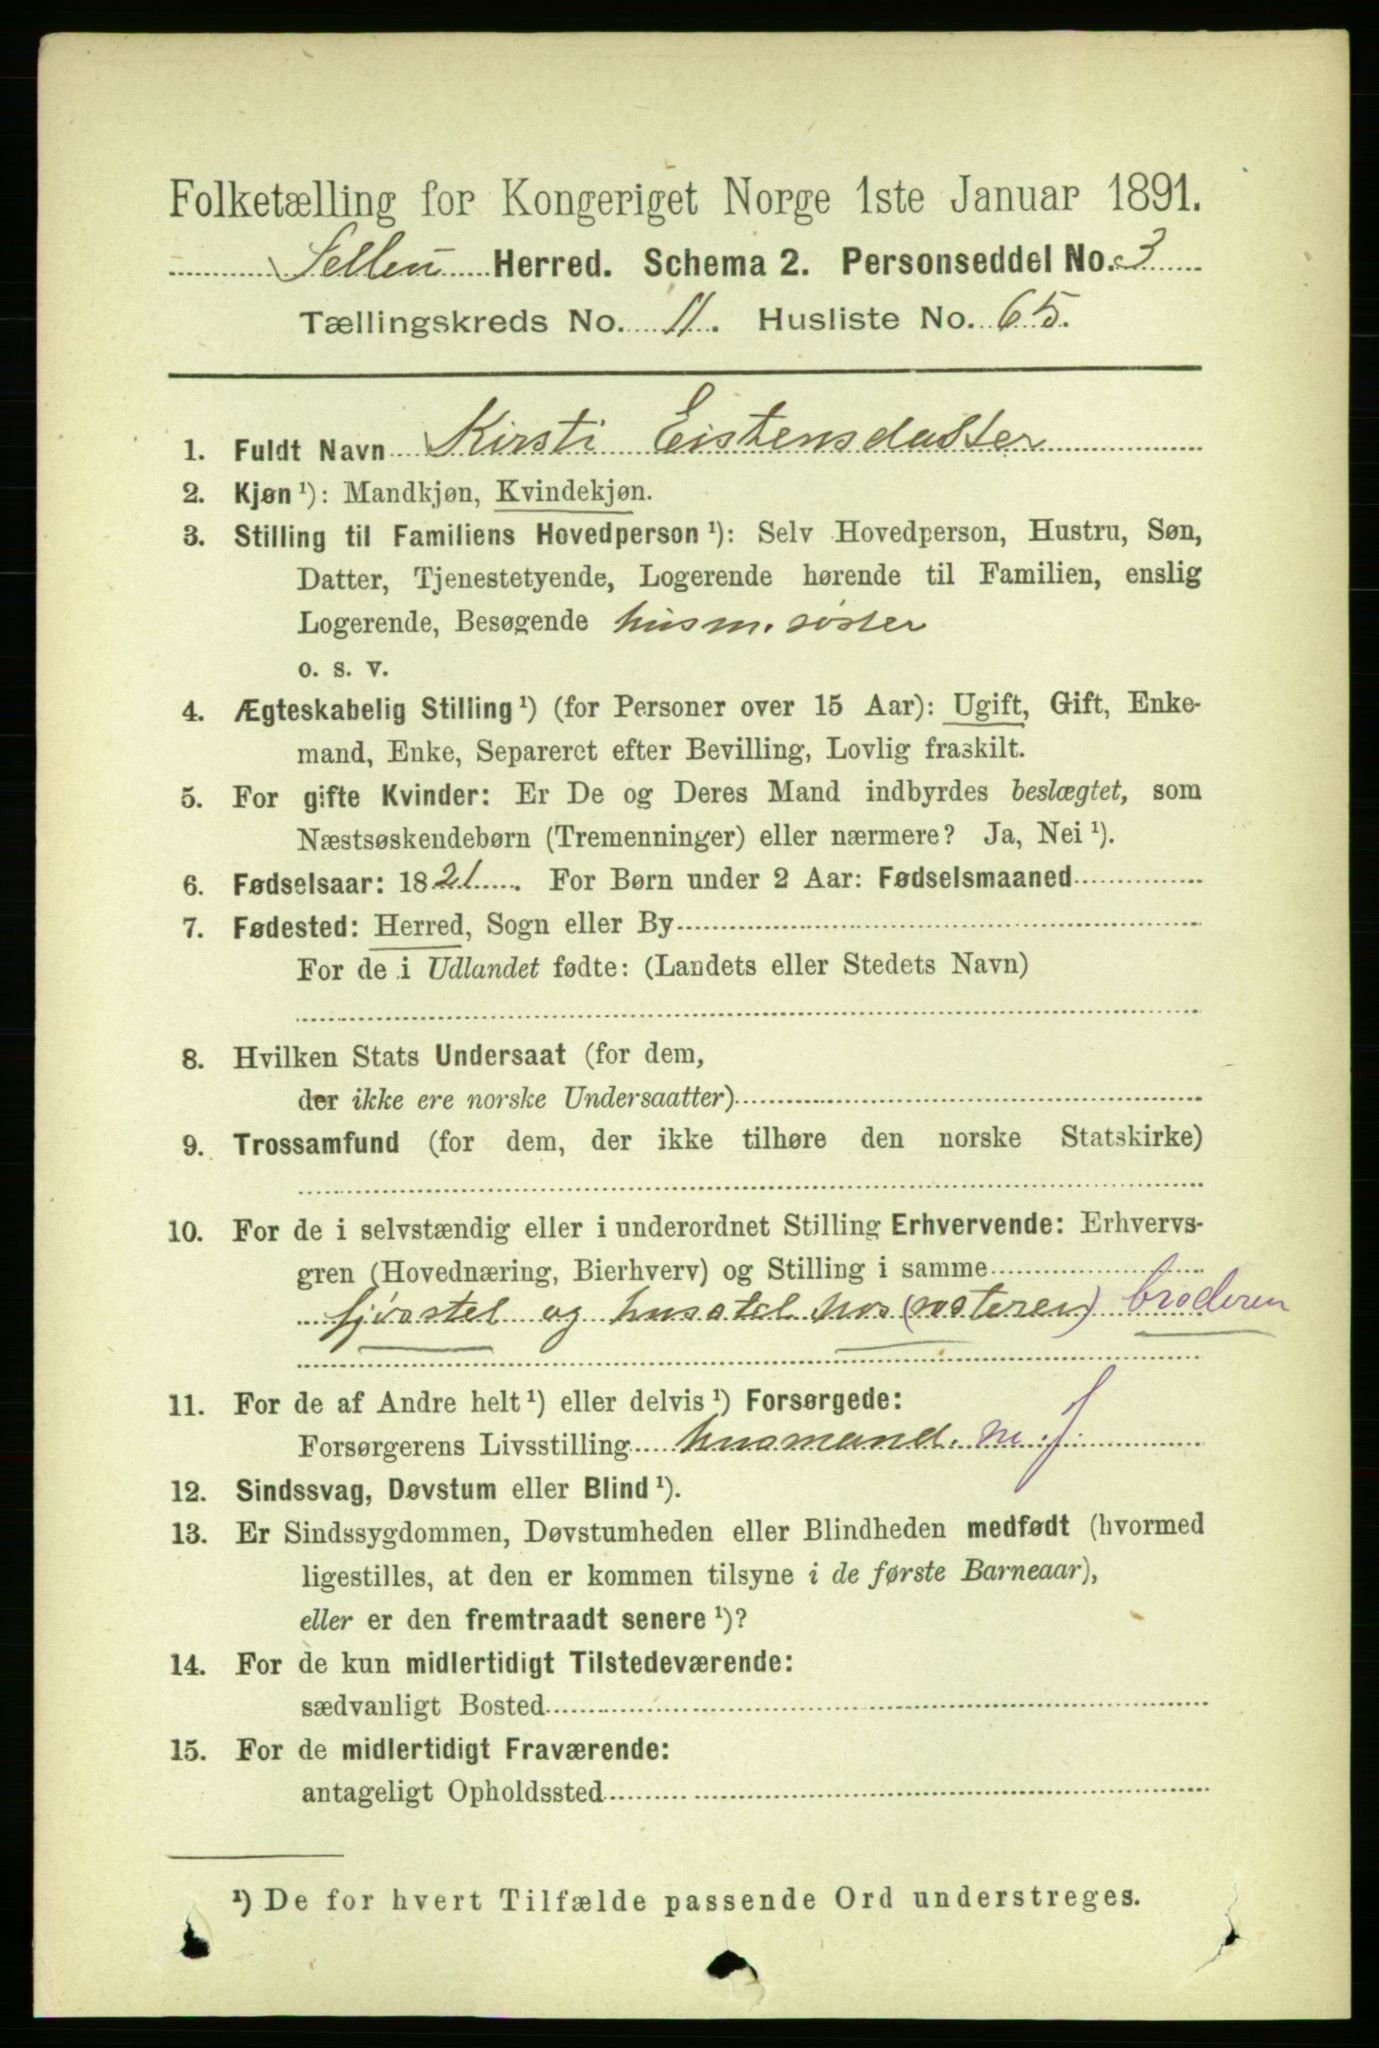 Folketælling for Kongeriget Norge 1ste Januar 1891.
Selbu Herred. Schema 2. Personseddel No. 3
Tællingskreds No. 11. Husliste No. 65.
1. Fuldt Navn Kirsti Eistensdatter
2. Kjøn ¹): Mandkjøn, Kvindekjøn.
3. Stilling til Familiens Hovedperson ¹): Selv Hovedperson, Hustru, Søn,
Datter, Tjenestetyende, Logerende hørende til Familien, enslig
Logerende, Besøgende husm. søster
o. s. v.
4. Ægteskabelig Stilling ¹) (for Personer over 15 Aar): Ugift, Gift, Enke-
mand, Enke, Separeret efter Bevilling, Lovlig fraskilt.
5. For gifte Kvinder: Er De og Deres Mand indbyrdes beslægtet, som
Næstsøskendebørn (Tremenninger) eller nærmere? Ja, Nei ¹).
6. Fødselsaar: 1821. For Børn under 2 Aar: Fødselsmaaned
7. Fødested: Herred, Sogn eller By
For de i Udlandet fødte: (Landets eller Stedets Navn)
8. Hvilken Stats Undersaat (for dem,
der ikke ere norske Undersaatter)
9. Trossamfund (for dem, der ikke tilhøre den norske Statskirke)
10. For de i selvstændig eller i underordnet Stilling Erhvervende: Erhvervs-
gren (Hovednæring, Bierhverv) og Stilling i samme
fjösstel og husstel hos (væteren) broderen
11. For de af Andre helt ¹) eller delvis ¹) Forsørgede:
Forsørgerens Livsstilling husmand. m. j
12. Sindssvag, Døvstum eller Blind ¹).
13. Er Sindssygdommen, Døvstumheden eller Blindheden medfødt (hvormed
ligestilles, at den er kommen tilsyne i de første Barneaar),
eller er den fremtraadt senere ¹)?
14. For de kun midlertidigt Tilstedeværende:
sædvanligt Bosted
15. For de midlertidigt Fraværende:
antageligt Opholdssted
¹) De for hvert Tilfælde passende Ord understreges.